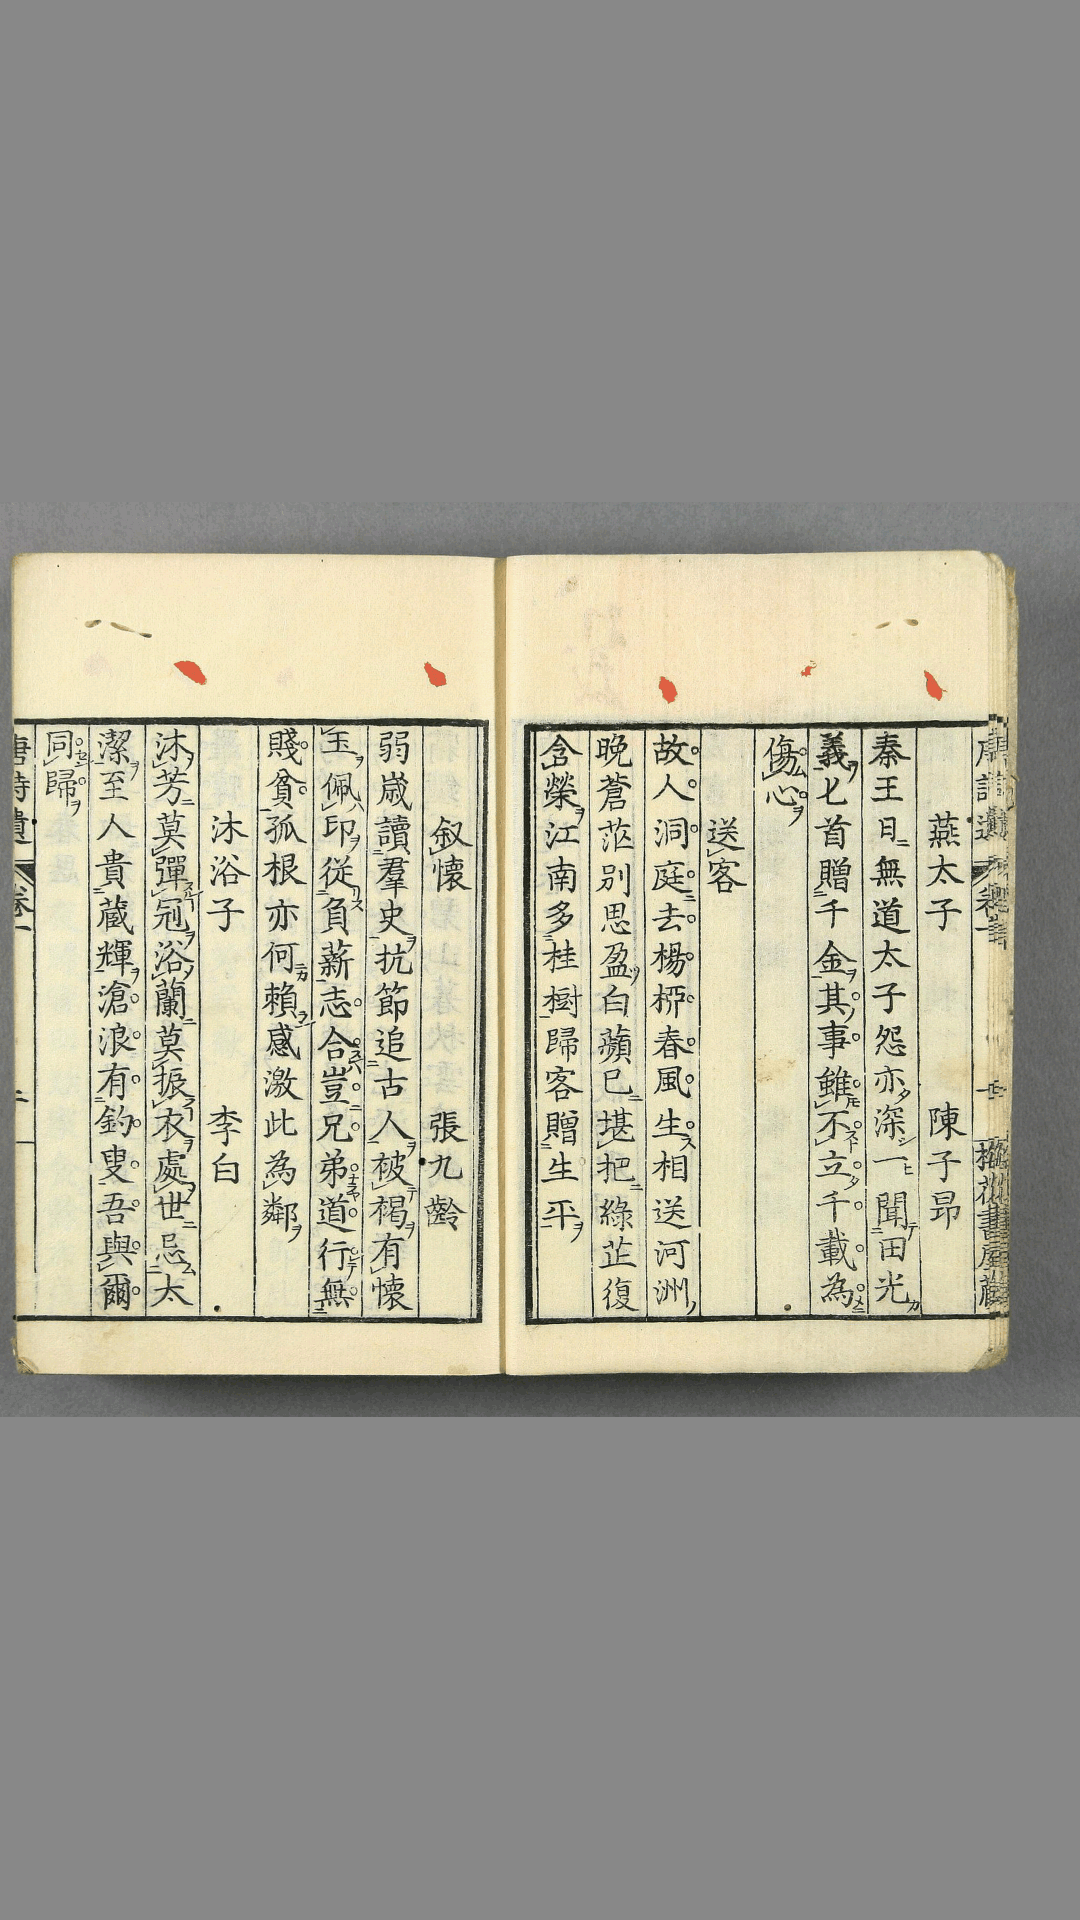 燕太子 陳子昂
秦王日無道太子怨亦深一聞田光
義匕首贈千金其事雖不立千載為
傷心
送客
故人洞庭去楊桺春風生相送河洲
晚蒼茫別思盈白蘋已堪把綠芷復
含榮江南多桂樹歸客贈生平
叙懷 張九齡
弱嵗讀羣史抗節追古人被褐有懷
玉佩印從負薪志合豈兄弟道行無
賤貧孤根亦何賴感激此為鄰
沐浴子 李白
沐芳莫彈冠浴蘭莫振衣處世忌太
潔至人貴藏輝滄浪有釣叟吾與爾
同歸
唐詩遺 卷一